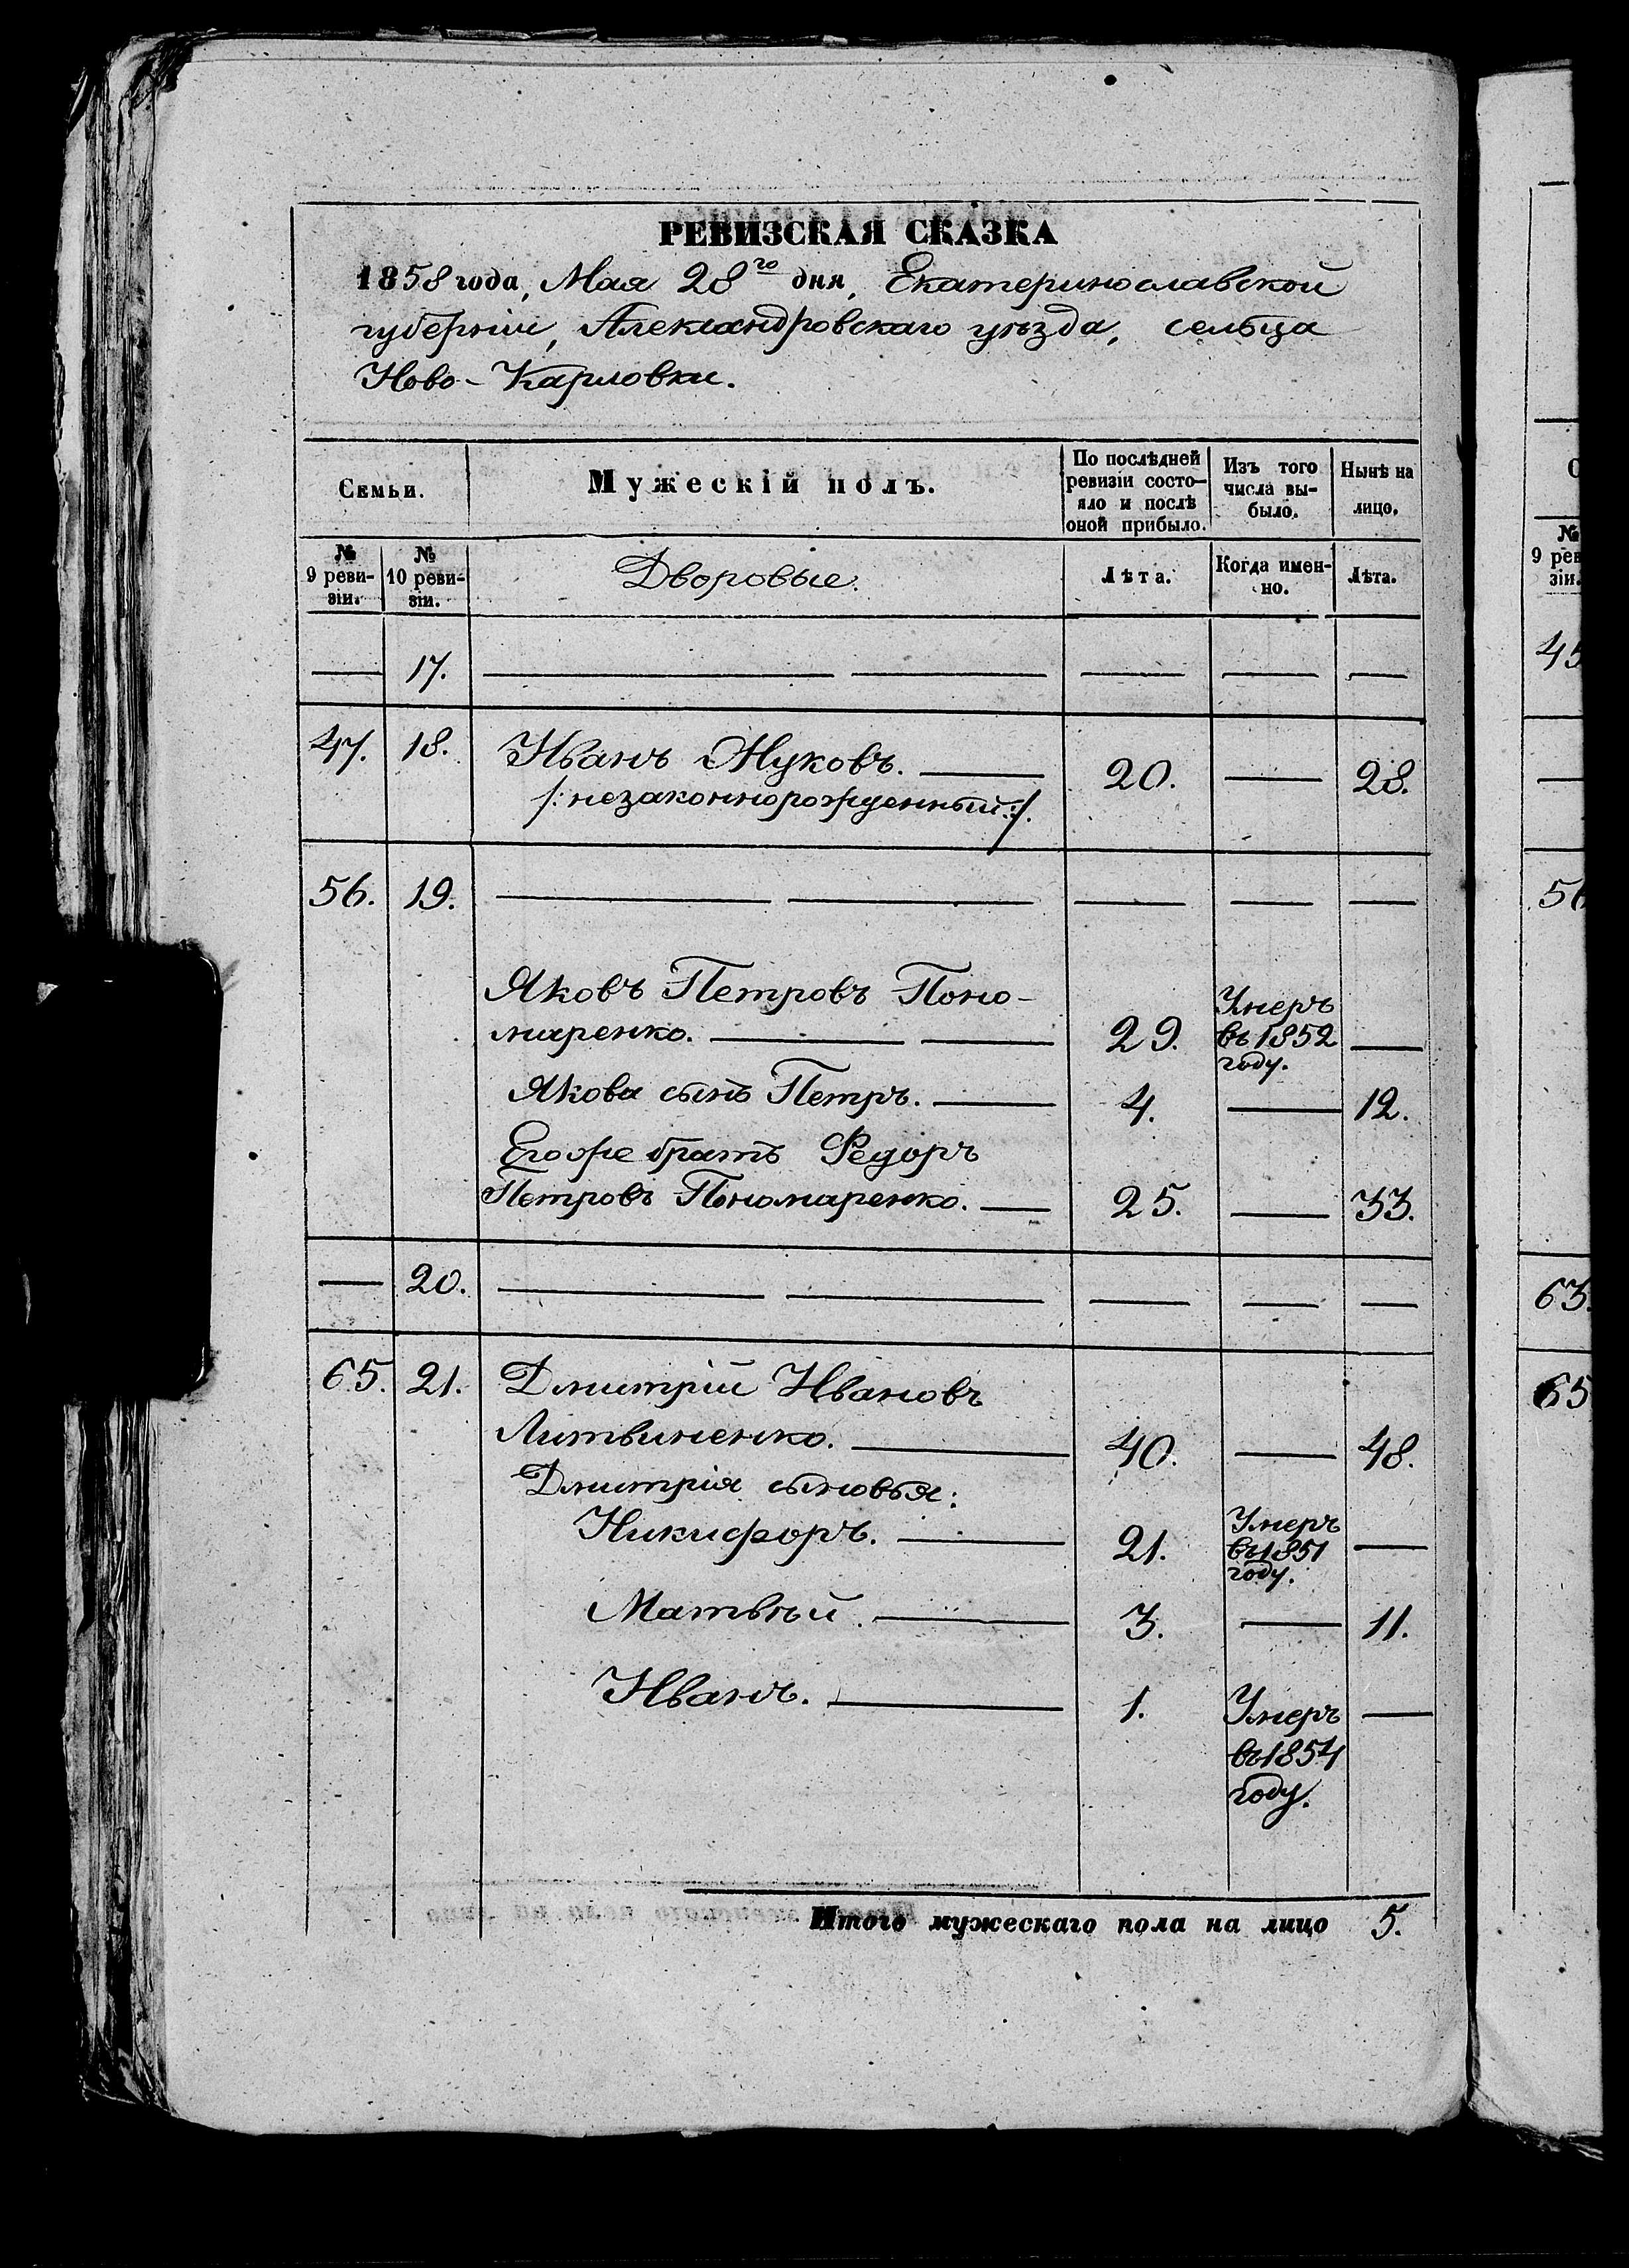 РЕВИЗСКАЯ СКАЗКА
1858 года, Мая 28го дня, Екатеринославской
губерніи, Александровскаго уѣзда, сельца
Ново-Карловки.
Семьи.
Мужескій полъ.
По послѣдней
ревизіи состо-
яло и послѣ
оной прибыло.
Изъ того
числа вы-
было.
Нынѣ на
лицо.
№
9 реви-
зіи.
№
10 реви-
зіи.
Дворовые.
Лѣта.
Когда имен-
но.
Лѣта.
17.
47. 18. Иванъ Жуковъ. 20. 28.
/:незаконнорожденный:/.
56. 19.
Яковъ Петровъ Поно-
маренко. 29. Умеръ въ 1852 году.
Якова сынъ Петръ. 4. 12.
Его же братъ Федоръ
Петровъ Пономаренко. 25. 33.
20.
65. 21. Дмитрій Ивановъ
Литвиненко. 40. 48.
Дмитрія сыновья:
Никифоръ. 21. Умеръ въ 1851 году.
Матвѣй. 3. 11.
Иванъ. 1. Умеръ
въ 1854
году.
Итого мужескаго пола на лицо 5.
№
9 рев
зіи.
45
56
63.
65